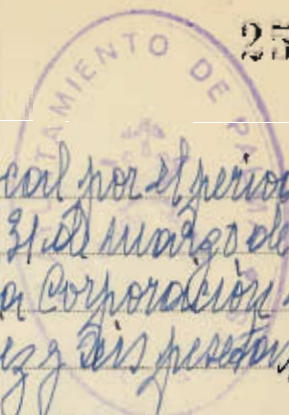 25
TAMIENTO DE PA
cal por el period
31 de marzo de
a Corporación
ez y seis pesetas